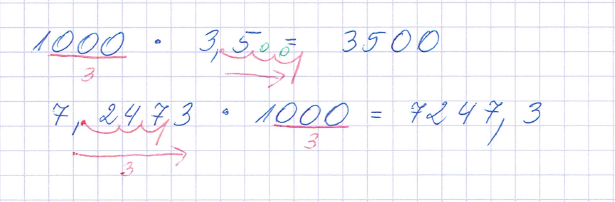 1000 · 3,500 = 3500
3
7,2473 · 1000 = 7247,3
3 3